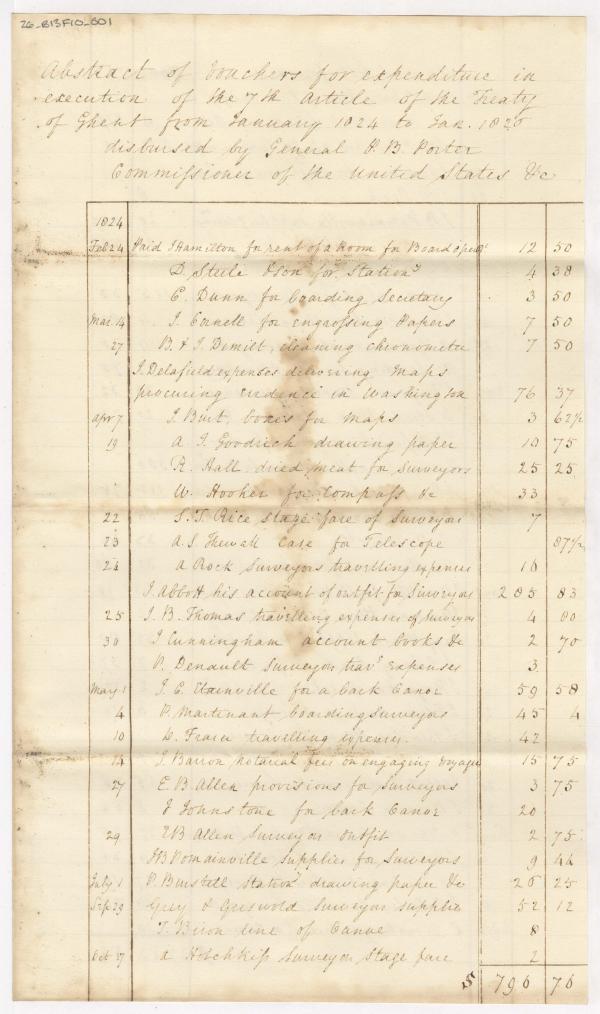 26_B13F10_001
Abstract of Vouchers for expenditure in
execution of the 7th Article of the Treaty
of Ghent from January 1824 to Jan. 1826
disbursed by General P. B. Porter
Commissioner of the United States &c
1824
Feb 24 Paid J Hamilton for rent of a Room for Board 12 50
D. Steele &son for Station^y 4 38
C. Dunn for boarding Secretary 3 50
Mar. 14 J. Cornell for engrossing Papers 7 50
27 B. & J. Demilt, cleaning chronometer 7 50
J. Delafield expenses delivering maps
procuring evidence in Washington 76 37
Apr 7 J. Burt, boxes for maps 3 62½
19 A. T. Goodrich drawing paper 10 75
R. Hall dried meat for Surveyors 25 25
W. Hooker for Compass &c 33
22 S. T. Rice stage fare of Surveyors 7
23 A. S. Case for Telescope 87½
24 A Rock Surveyors travelling expenses 18
J. Abbott his account of outfit for Surveyors 285 83
25 J. B. Thomas travelling expenses of Surveyors 4 80
30 J. Cunningham account books &c 2 70
P. Denault Surveyors trav^g expenses 3
May 1 J. C. for a bark Canoe 59 58
4 P. Martenant boarding Surveyors 45 4
10 D. Fraser travelling expenses. 42
14 J. Barron notarial fees on engaging voyagers 15 75
27 E. B. Allen provisions for Surveyors 3 75
J Johnstone for bark Canoe 20
29 E B Allen Surveyors outfit 2 75
J B Romainville Supplies for Surveyors 9 44
July 1 P. Burstell Station^y drawing paper &c 26 25
Sep 29 Grey & Griswold Surveyors supplies 52 12
T. Biron line of Canoe 8
Oct 27 A Hotchkiss Surveyors Stage fare 2
796 76